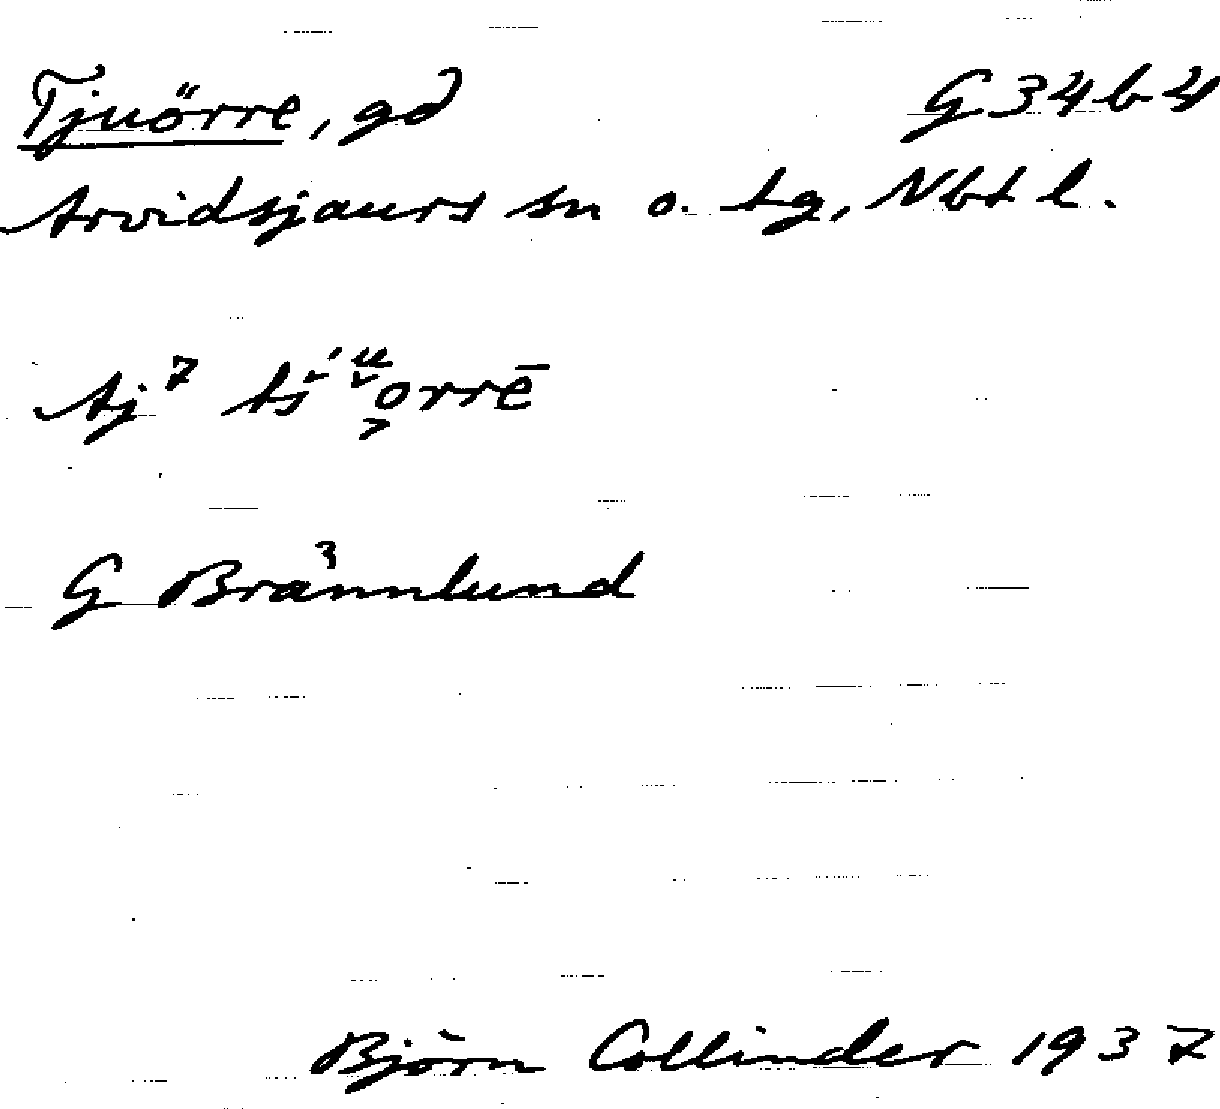 Tjuörre, gd G34b4
Arvidsjaurs sn o. tg, Nbt l.
Aj 7
G Brännlund
Björn Collinder 1937